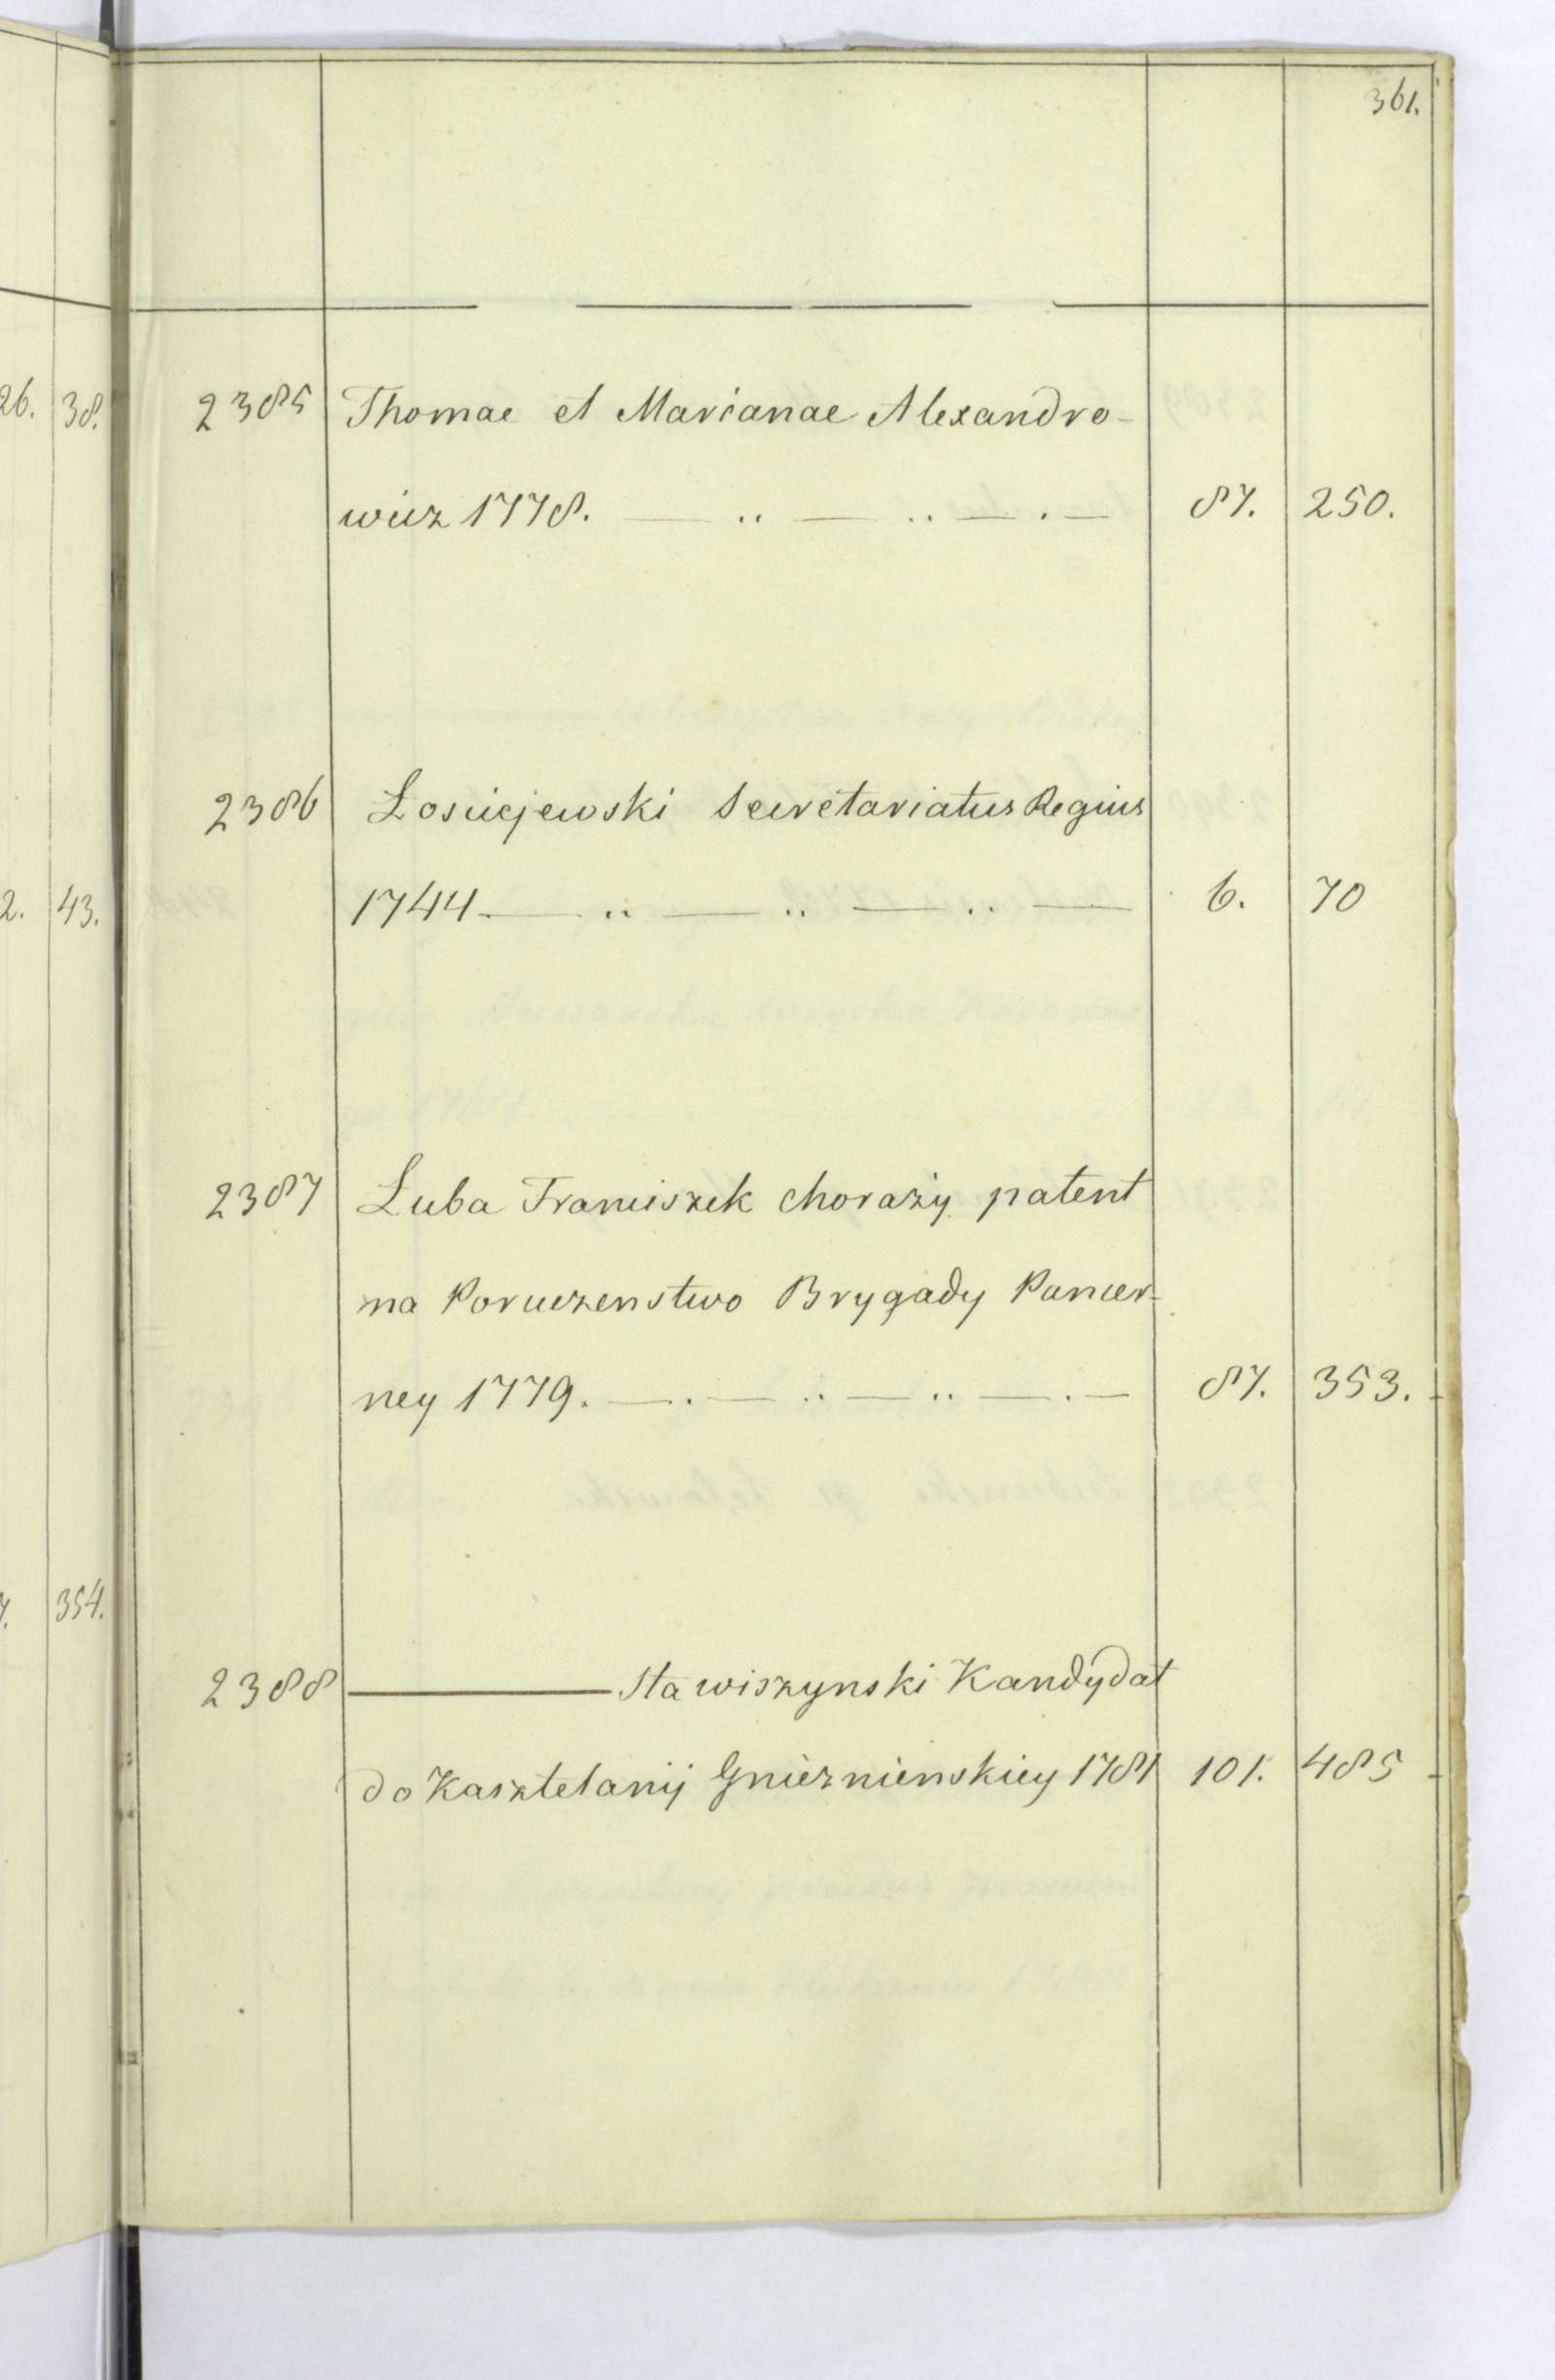 361.
26. 38.
2385 Thomae et Marianae Alexandro-
wicz 1778. 87. 250.
2386 Łosiciejewski Secretariatus Regius
1744. 6. 70
2. 43.
2387 Luba Franciszek chorąży patent
na Poruczenstwo Brygady Pancer-
ney 1779. 87. 353.
354.
2388 Stawiszynski Kandydat
do Kasztelanij Gnieznienskiey 1781 101. 485